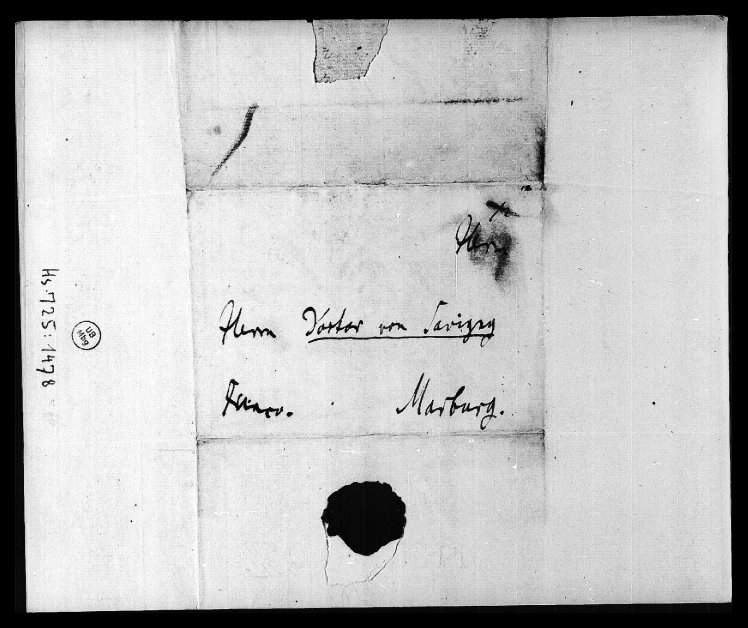 Herrn Doctor von Savigny
Franco. Marburg.
Hs. 725:1478
UB
Mbg